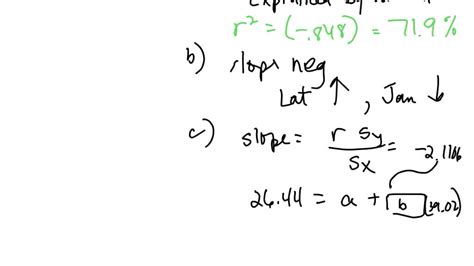 Explained by
r² = (-.848) = 71.9%
b) slope neg
Lat ↑ , Jan ↓
c) slope = r sy / sx = -2.1106
26.44 = a + b (39.02)